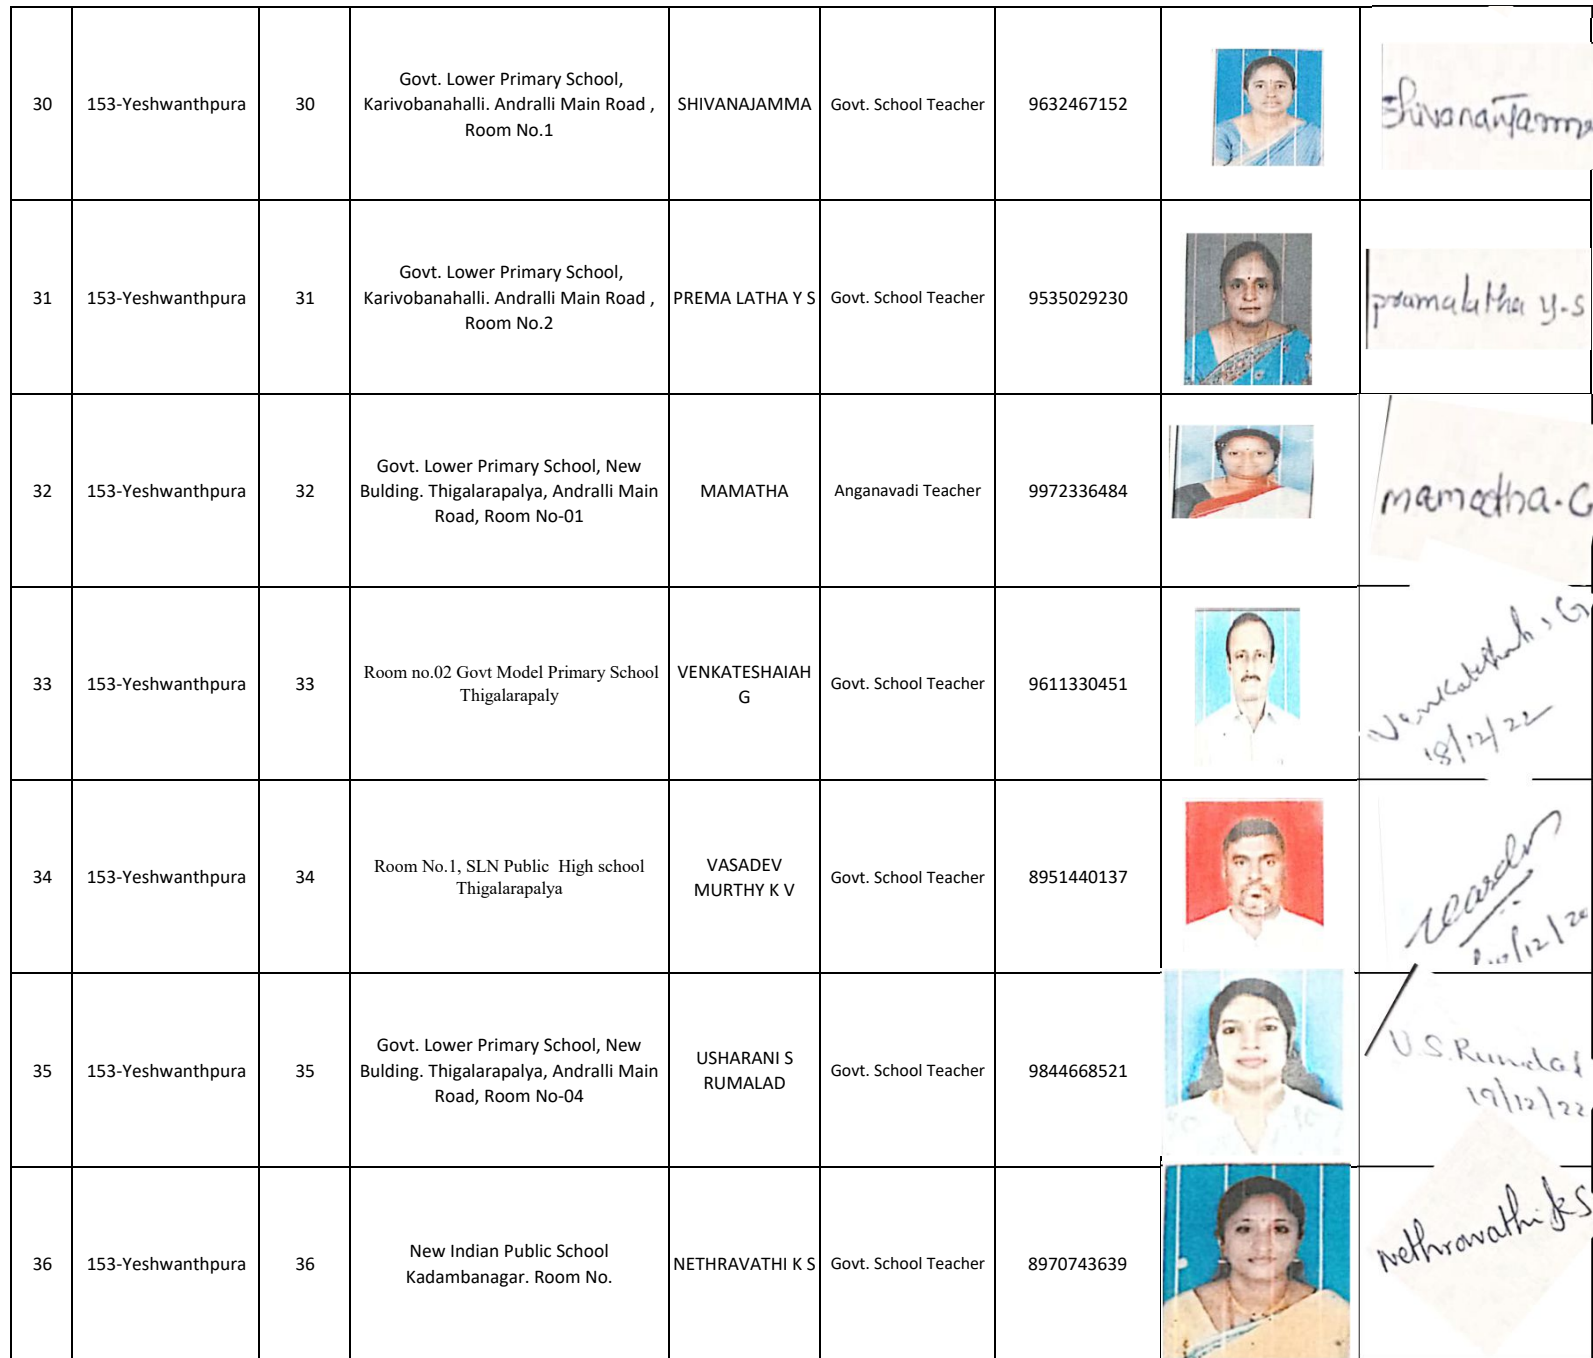 30
153-Yeshwanthpura
30
Govt. Lower Primary School,
Karivobanahalli. Andralli Main Road ,
Room No.1
SHIVANAJAMMA
Govt. School Teacher
9632467152
Shivananjamma
31
153-Yeshwanthpura
31
Govt. Lower Primary School,
Karivobanahalli. Andralli Main Road ,
Room No.2
PREMA LATHA Y S
Govt. School Teacher
9535029230
pramalatha y.s
32
153-Yeshwanthpura
32
Govt. Lower Primary School, New
Bulding. Thigalarapalya, Andralli Main
Road, Room No-01
MAMATHA
Anganavadi Teacher
9972336484
mamatha.G
33
153-Yeshwanthpura
33
Room no.02 Govt Model Primary School
Thigalarapaly
VENKATESHAIAH
G
Govt. School Teacher
9611330451
18/12/22
34
153-Yeshwanthpura
34
Room No.1, SLN Public High school
Thigalarapalya
VASADEV
MURTHY K V
Govt. School Teacher
8951440137
35
153-Yeshwanthpura
35
Govt. Lower Primary School, New
Bulding. Thigalarapalya, Andralli Main
Road, Room No-04
USHARANI S
RUMALAD
Govt. School Teacher
9844668521
U.S.Rumalad
19/12/22
36
153-Yeshwanthpura
36
New Indian Public School
Kadambanagar. Room No.
NETHRAVATHI K S
Govt. School Teacher
8970743639
Nethravathi K S